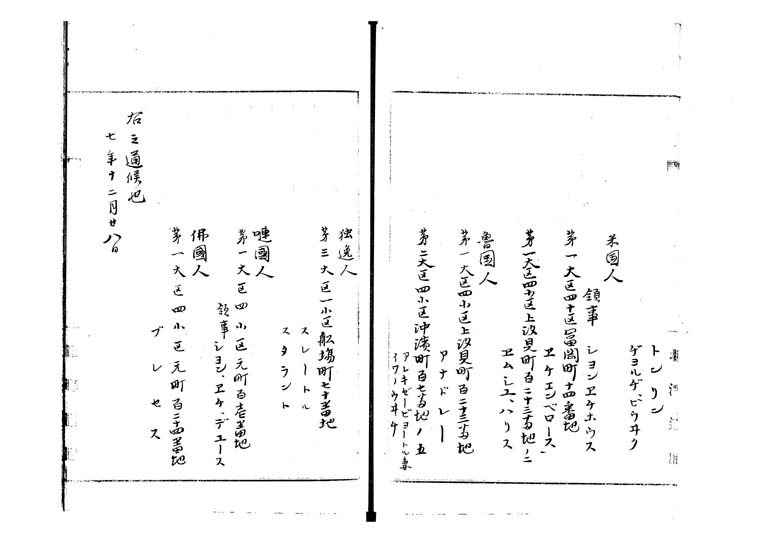 トンリン
ゲヨルゲ、ビウヰク
米国人
領事 ションヱケホウス
第一大区四小区富岡町十四番地
ヱケエンベロース、
第一大区四小区上汐見町百二十三番地ノ二
ヱムシユ、ハリス
魯国人
第一大区四小区上汐見町百二十三番地
アナドレー
第二大区四小区沖濱町百七番地ノ五
アレキセービヨートル妻
独逸人
第三大区一小区船場町七十番地
スレートル
スタラント
嗹国人
第一大区四小区元町百壱番地
領事 ション、ヱケ、デユース
佛國人
第一大区四小区元町百二十四番地
プレセス
右之通候也
七年十二月廿八日